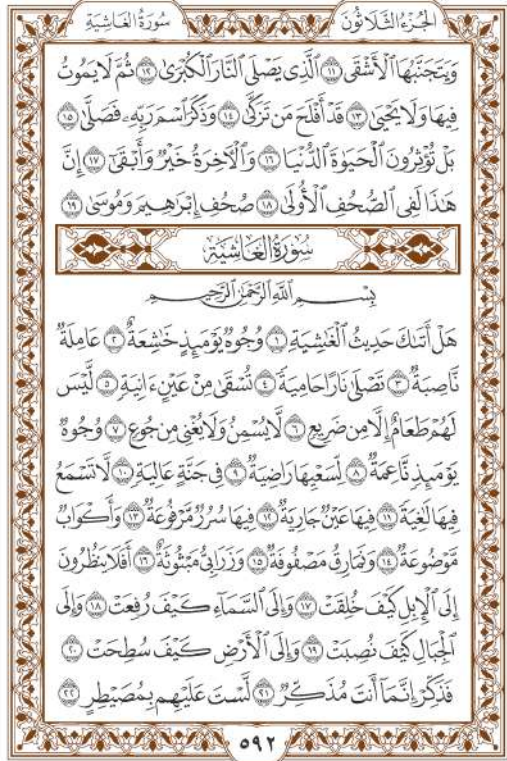 الجُزْءُ الثَّلَاثُونَ سُورَةُ الغَاشِيَةِ
وَيَتَجَنَّبُهَا ٱلْأَشْقَى ١١ ٱلَّذِى يَصْلَى ٱلنَّارَ ٱلْكُبْرَىٰ ١٢ ثُمَّ لَا يَمُوتُ
فِيهَا وَلَا يَحْيَىٰ ١٣ قَدْ أَفْلَحَ مَن تَزَكَّىٰ ١٤ وَذَكَرَ ٱسْمَ رَبِّهِۦ فَصَلَّىٰ ١٥
بَلْ تُؤْثِرُونَ ٱلْحَيَوٰةَ ٱلدُّنْيَا ١٦ وَٱلْـَٔاخِرَةُ خَيْرٌ وَأَبْقَىٰٓ ١٧ إِنَّ
هَٰذَا لَفِى ٱلصُّحُفِ ٱلْأُولَىٰ ١٨ صُحُفِ إِبْرَٰهِيمَ وَمُوسَىٰ ١٩
سُورَةُ الغَاشِيَةِ
بِسْمِ ٱللَّهِ ٱلرَّحْمَٰنِ ٱلرَّحِيمِ
هَلْ أَتَىٰكَ حَدِيثُ ٱلْغَٰشِيَةِ ١ وُجُوهٌ يَوْمَئِذٍ خَٰشِعَةٌ ٢ عَامِلَةٌ
نَّاصِبَةٌ ٣ تَصْلَىٰ نَارًا حَامِيَةً ٤ تُسْقَىٰ مِنْ عَيْنٍ ءَانِيَةٍ ٥ لَّيْسَ
لَهُمْ طَعَامٌ إِلَّا مِن ضَرِيعٍ ٦ لَّا يُسْمِنُ وَلَا يُغْنِى مِن جُوعٍ ٧ وُجُوهٌ
يَوْمَئِذٍ نَّاعِمَةٌ ٨ لِّسَعْيِهَا رَاضِيَةٌ ٩ فِى جَنَّةٍ عَالِيَةٍ ١٠ لَّا تَسْمَعُ
فِيهَا لَٰغِيَةً ١١ فِيهَا عَيْنٌ جَارِيَةٌ ١٢ فِيهَا سُرُرٌ مَّرْفُوعَةٌ ١٣ وَأَكْوَابٌ
مَّوْضُوعَةٌ ١٤ وَنَمَارِقُ مَصْفُوفَةٌ ١٥ وَزَرَابِىُّ مَبْثُوثَةٌ ١٦ أَفَلَا يَنظُرُونَ
إِلَى ٱلْإِبِلِ كَيْفَ خُلِقَتْ ١٧ وَإِلَى ٱلسَّمَآءِ كَيْفَ رُفِعَتْ ١٨ وَإِلَى
ٱلْجِبَالِ كَيْفَ نُصِبَتْ ١٩ وَإِلَى ٱلْأَرْضِ كَيْفَ سُطِحَتْ ٢٠
فَذَكِّرْ إِنَّمَآ أَنتَ مُذَكِّرٌ ٢١ لَّسْتَ عَلَيْهِم بِمُصَيْطِرٍ ٢٢
٥٩٢